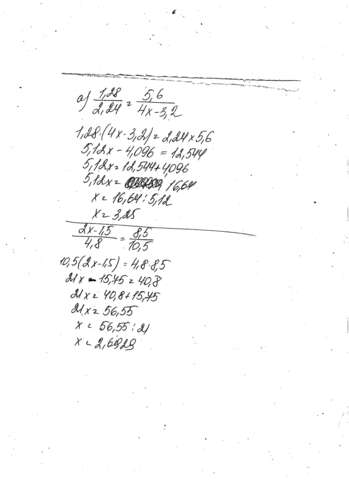 а) 1,28/2,24 = 5,6/4x-3,2
1,28·(4x-3,2)=2,24x5,6
5,12x-4,096 = 12,544
5,12x=12,544+4,096
5,12x= 16,64
x=16,64:5,12
x=3,25
2x-1,5/4,8 = 8,5/10,5
10,5(2x-1,5)=4,8·8,5
21x-15,75=40,8
21x=40,8+15,75
21x=56,55
x=56,55:21
x=2,6929